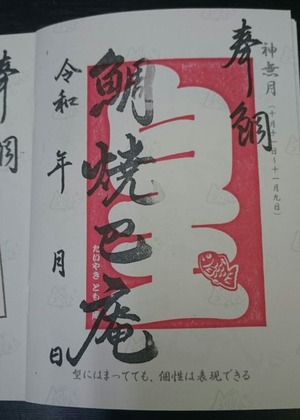 奉鯛
神無月(十月十一日〜十一月九日)
鯛焼巴庵
たいやき とも
令和 年 月 日
型にはまってても、個性は表現できる
奉鯛